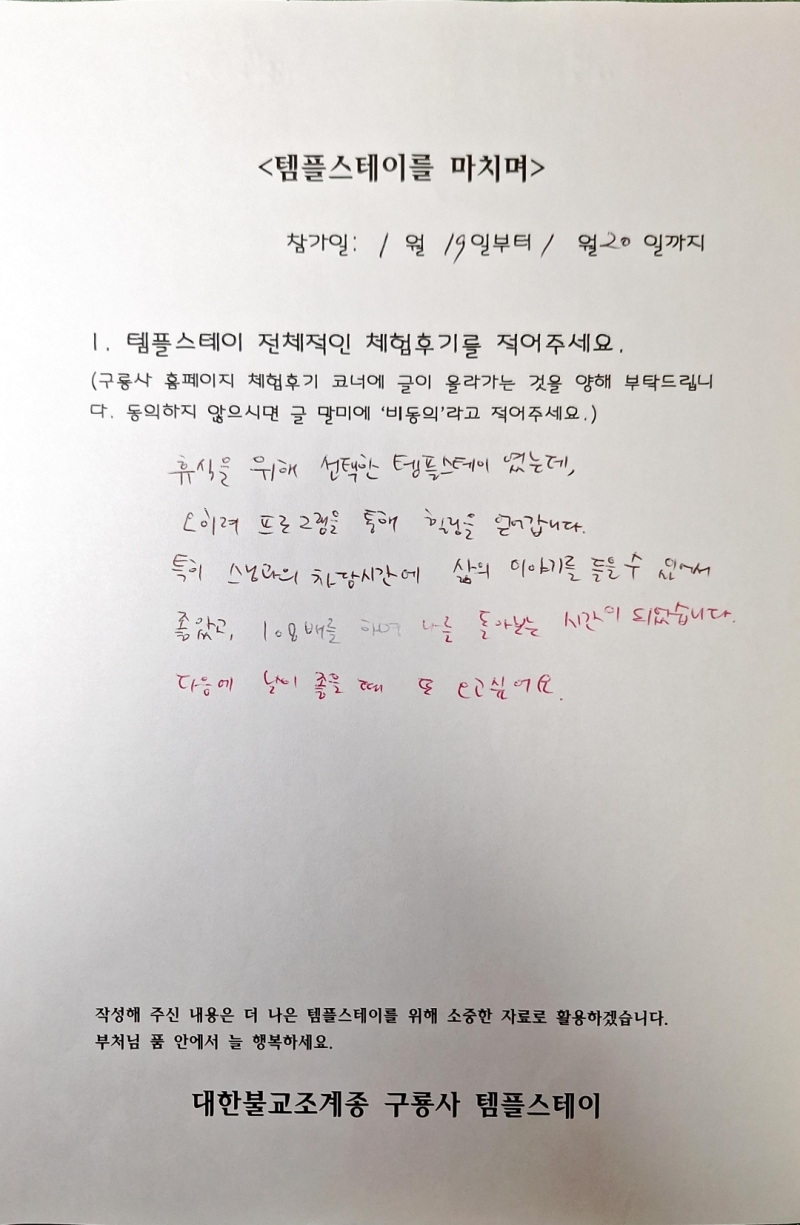 <템플스테이를 마치며>
참가일: 1 월 19일부터 1 월20 일까지
1. 템플스테이 전체적인 체험후기를 적어주세요.
(구룡사 홈페이지 체험후기 코너에 글이 올라가는 것을 양해 부탁드립니
다. 동의하지 않으시면 글 말미에 '비동의'라고 적어주세요.)
휴식을 위해 선택한 템플스테이 였는데,
오히려 프로그램을 통해 힐링을 얻어갑니다.
특히 스님과의 차담시간에 삶의 이야기를 들을 수 있어서
좋았고, 108배를 하며 나를 돌아보는 시간이 되었습니다.
다음에 날이 좋을 때 또 오고싶어요.
작성해 주신 내용은 더 나은 템플스테이를 위해 소중한 자료로 활용하겠습니다.
부처님 품 안에서 늘 행복하세요.
대한불교조계종 구룡사 템플스테이